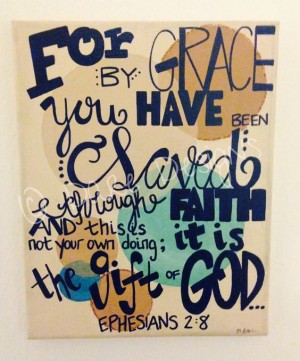 For
:BY: GRACE
you HAVE BEEN
Saved
through FAITH
AND this is
not your own doing; it is
the gift OF GOD...
EPHESIANS 2:8